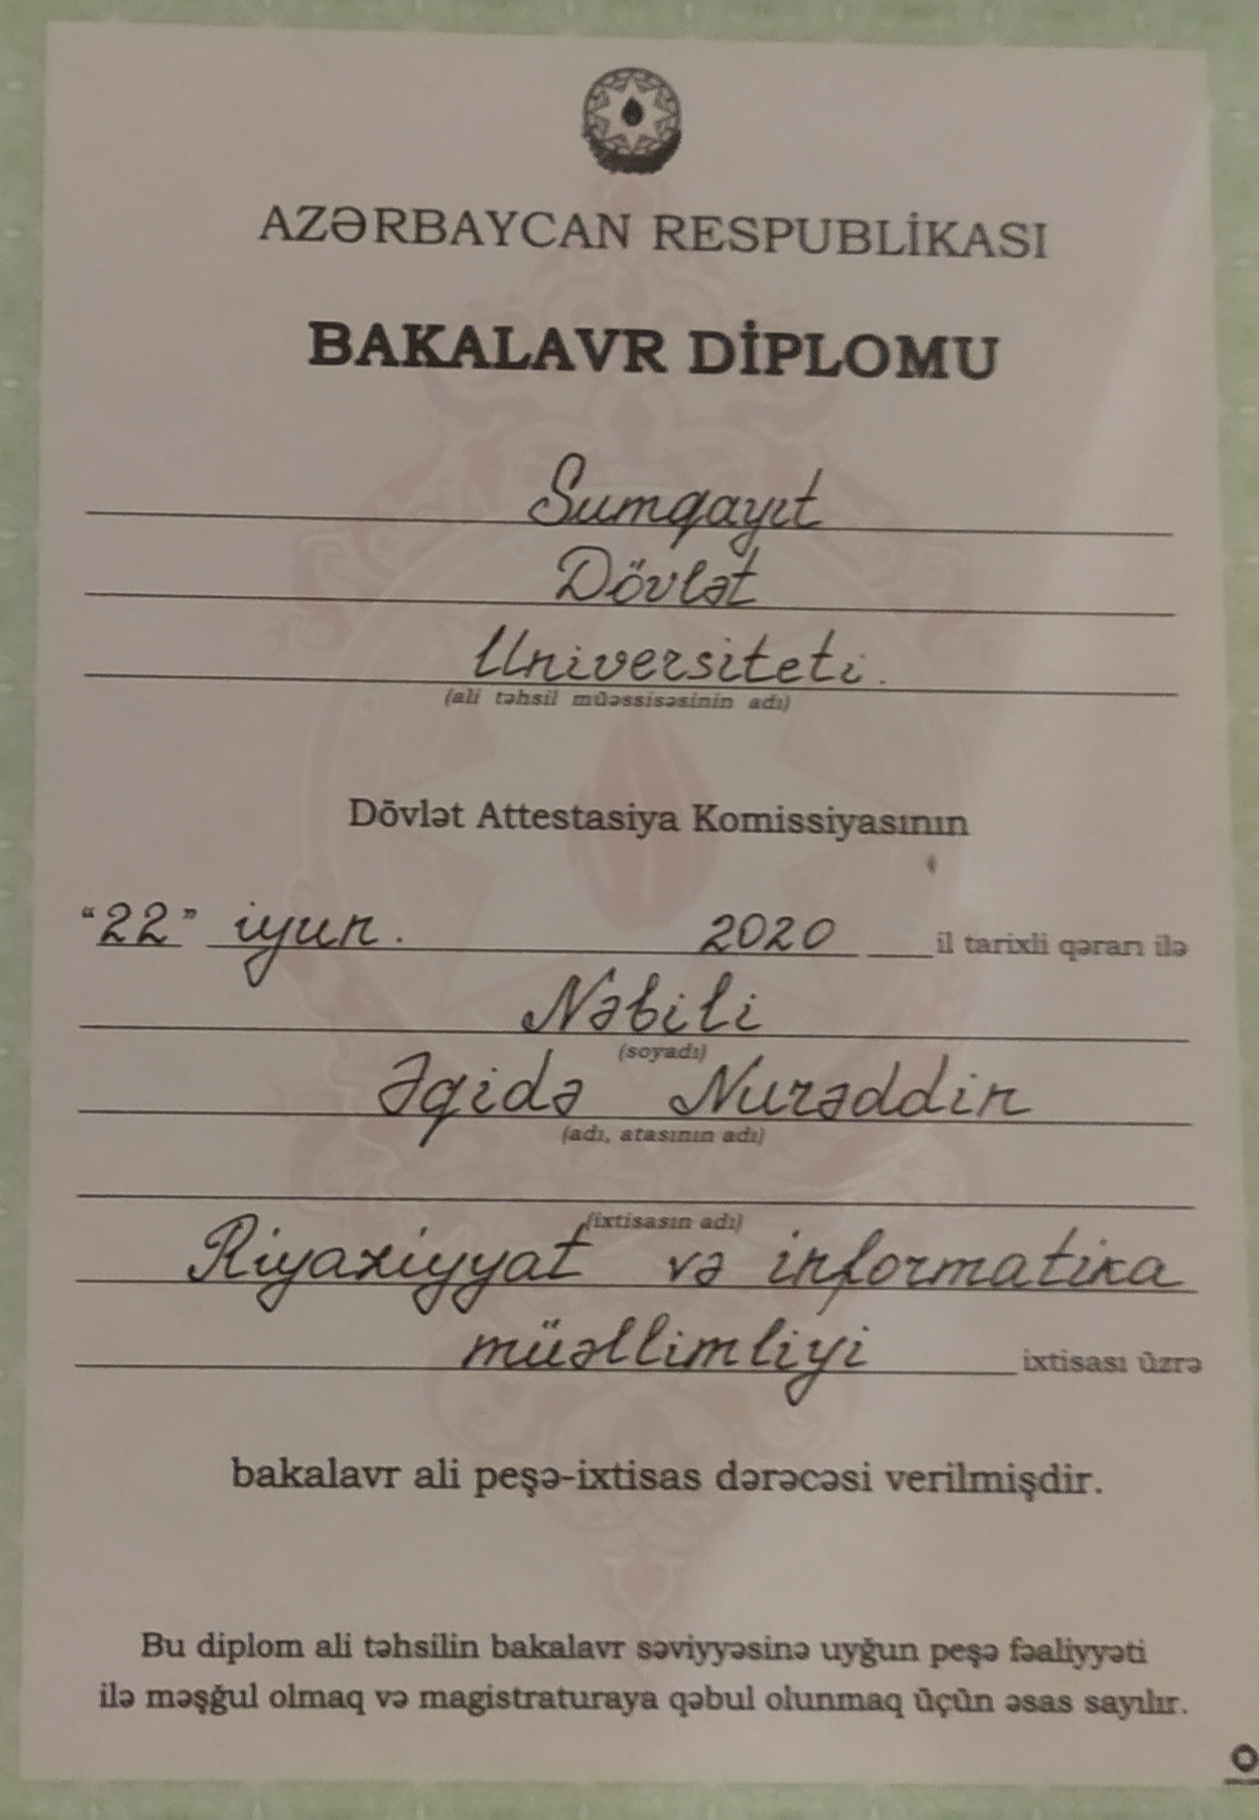 AZƏRBAYCAN RESPUBLİKASI
BAKALAVR DİPLOMU
Sumqayıt
Dövlət
Universiteti.
(ali təhsil müəssisəsinin adı)
Dövlət Attestasiya Komissiyasının
“22” iyun. 2020 il tarixli qərarı ilə
Nəbili
(soyadı)
Əqidə Nurəddin
(adı, atasının adı)
(ixtisasın adı)
Riyaziyyat və informatika
müəllimliyi ixtisası üzrə
bakalavr ali peşə-ixtisas dərəcəsi verilmişdir.
Bu diplom ali təhsilin bakalavr səviyyəsinə uyğun peşə fəaliyyəti
ilə məşğul olmaq və magistraturaya qəbul olunmaq üçün əsas sayılır.